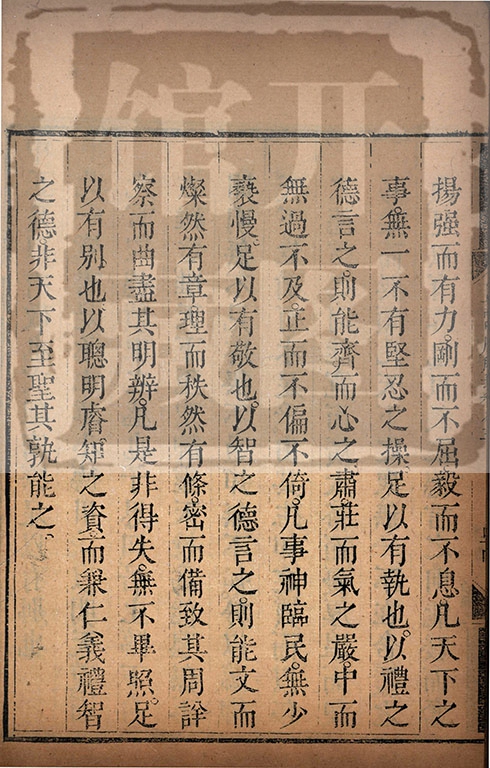 揚强而有力剛而不屈毅而不息凡天下之
事無一不有堅忍之操足以有執也以禮之
德言之則能齊而心之肅莊而氣之嚴中而
無過不及正而不偏不倚凡事神臨民無少
褻慢足以有敬也以智之德言之則能文而
燦然有章理而秩然有條密而備致其周詳
察而曲盡其明辨凡是非得失無不畢照足
以有別也以聰明睿知之資而兼仁義禮智
之德非天下至聖其孰能之